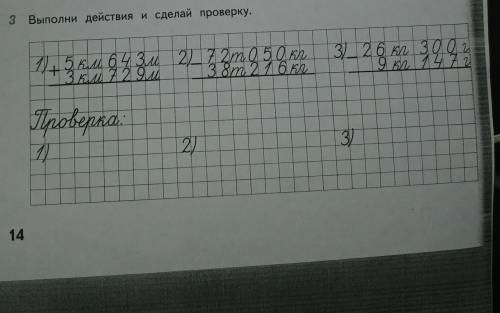 3 Выполни действия и сделай проверку.
1) + 5 км 643 м 2) - 72 т 050 кг 3) - 26 кг 300 г
3 км 729 м 38 т 216 кг 9 кг 147 г
Проверка:
1) 2) 3)
14